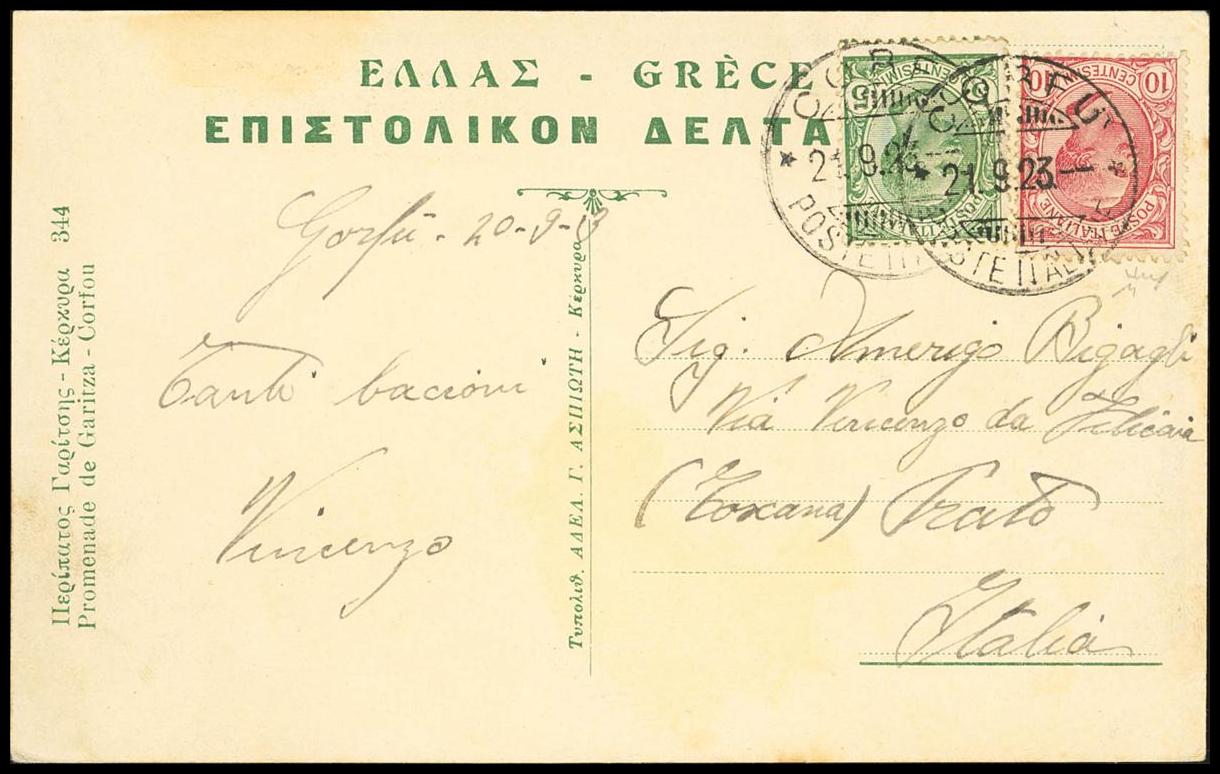 ΕΛΛΑΣ - GRÈCE
ΕΠΙΣΤΟΛΙΚΟΝ ΔΕΛΤΑ
5
CENTESIMI
POSTE ITALIANE
10 10
CENTESIMI
POSTE ITALIANE
CORFU
* 21.9.23
POSTE ITAL
CORFU
* 21.9.23 *
POSTE ITALIANE
Corfù - 20-9-23
Tanti bacioni
Vincenzo
Sig. Amerigo Bigagli
Via Vincenzo da Filicaia
(Toscana) Prato
Italia
Περίπατος Γαρίτσης - Κέρκυρα 344
Promenade de Garitza - Corfou
Τυπολιθ. ΑΔΕΛ. Γ. ΑΣΠΙΩΤΗ - Κέρκυρα